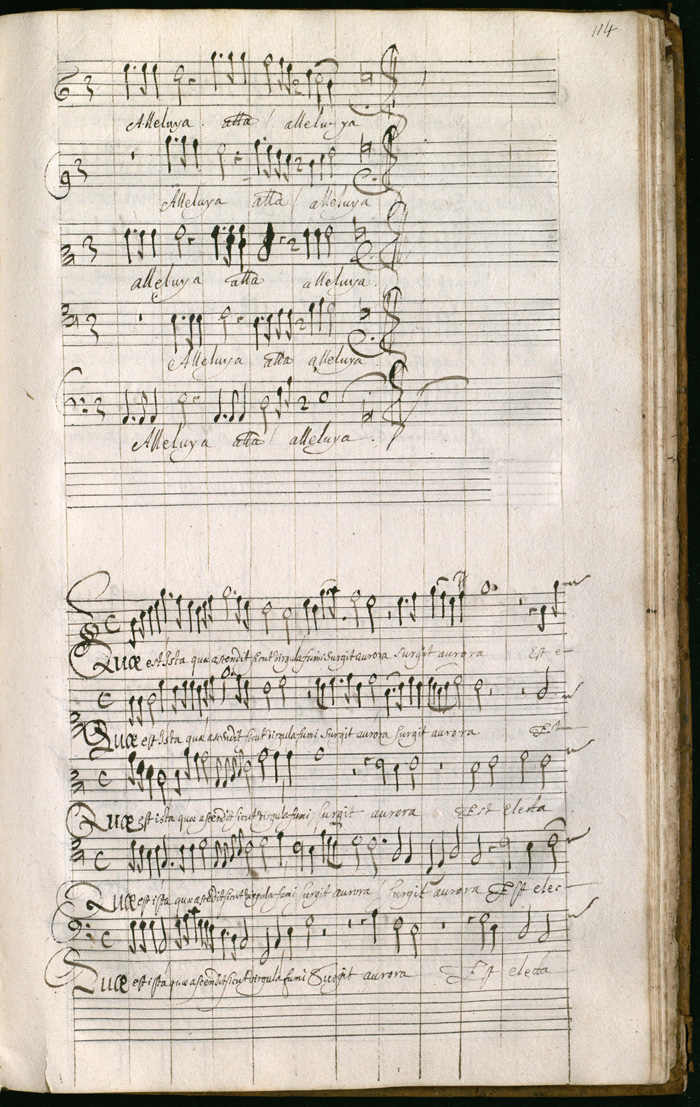 114
Alleluya atta alleluya
Alleluya atta alleluya
alleluya atta alleluya.
Alleluya atta alleluya
Alleluya atta alleluya.
Quæ est Ista quæ ascendit sicut virgula fumi Surgit aurora Surgit aurora Est e-
Quæ est Ista quæ ascendit sicut virgula fumi Surgit aurora surgit aurora Est
Quæ est ista quæ ascendit sicut virgula fumi surgit aurora Est electa
Quæ est ista quæ ascendit sicut virgula fumi surgit aurora surgit aurora Est elec-
Quæ est ista quæ ascendit sicut virgula fumi Surgit aurora Est electa